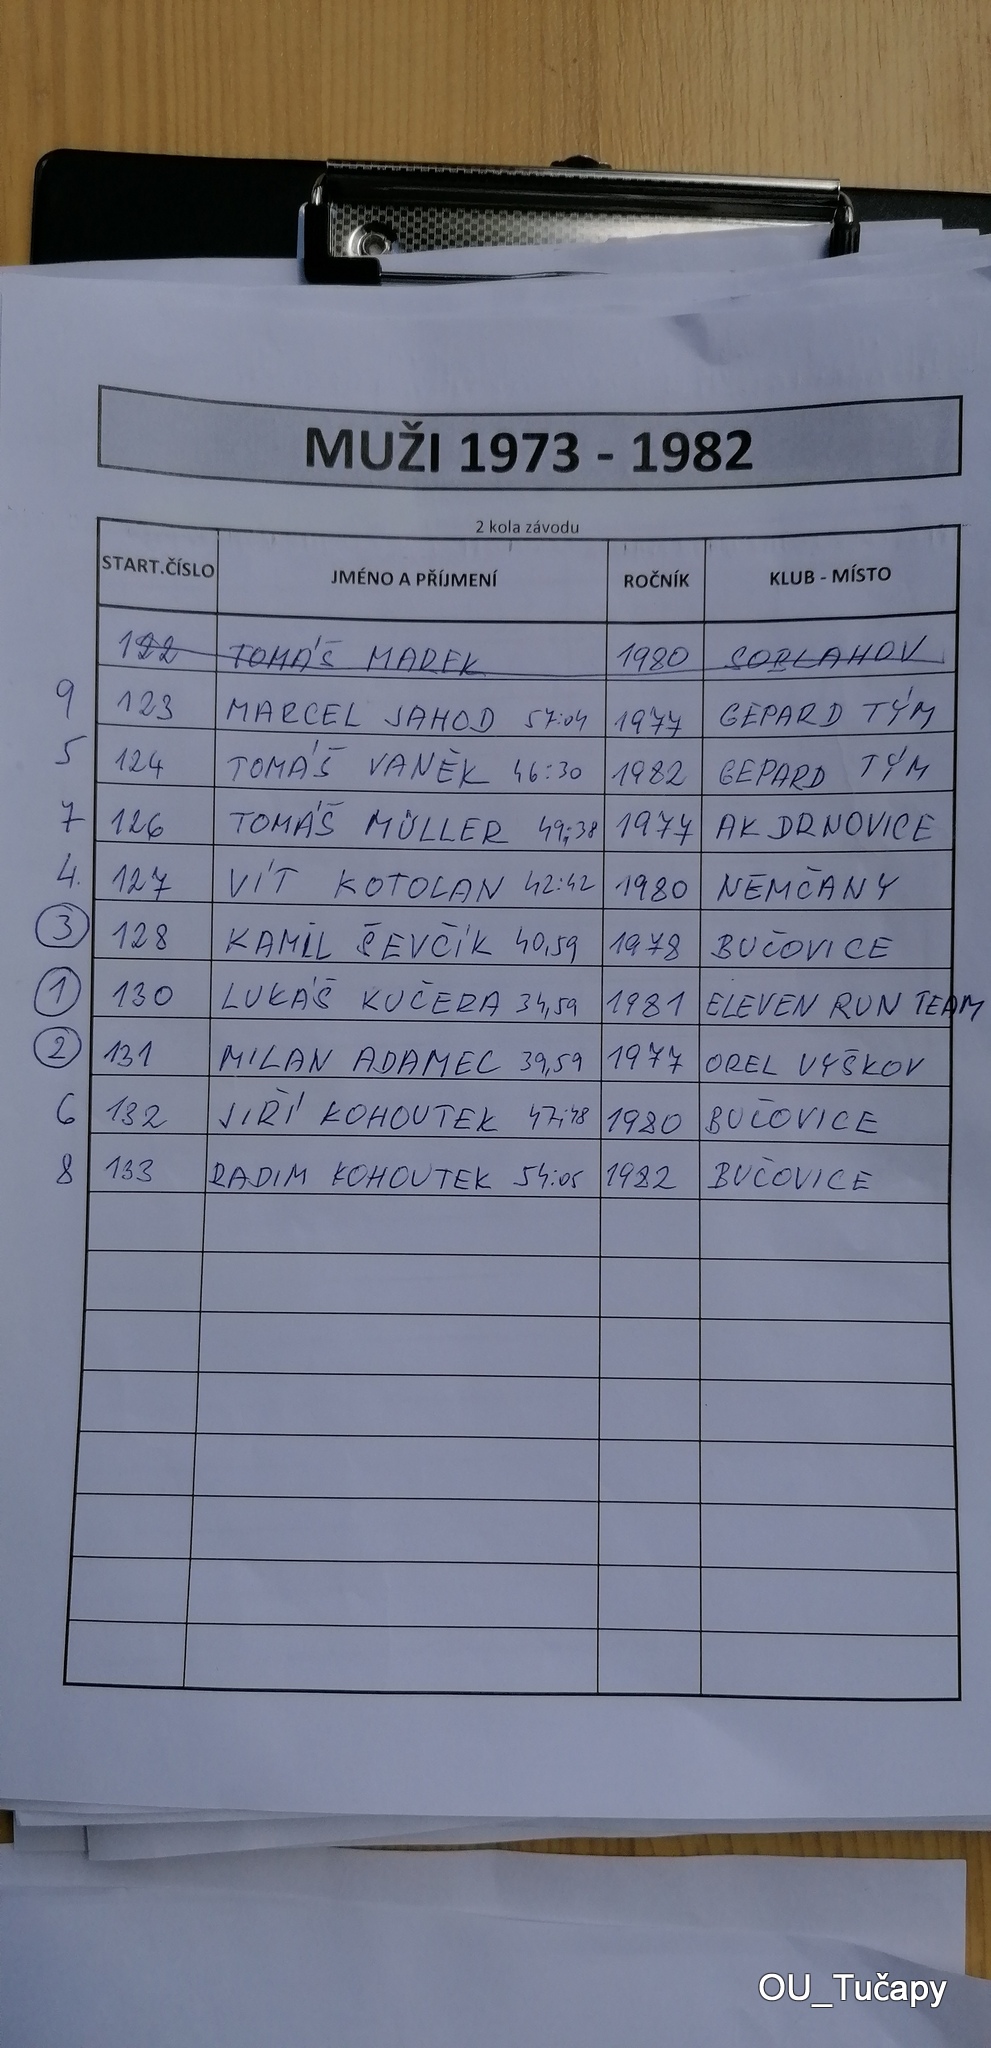 MUŽI 1973 - 1982
2 kola závodu
START.ČÍSLO JMÉNO A PŘÍJMENÍ ROČNÍK KLUB - MÍSTO
122 TOMÁŠ MAREK 1980 SOBLAHOV
9 123 MARCEL JAHOD 57:04 1977 GEPARD TÝM
5 124 TOMÁŠ VANĚK 46:30 1982 GEPARD TÝM
7 126 TOMÁŠ MÜLLER 49:38 1977 AK DRNOVICE
4. 127 VÍT KOTOLAN 42:42 1980 NĚMČANY
3 128 KAMIL ŠEVČÍK 40,59 1978 BUČOVICE
1 130 LUKÁŠ KUČERA 34,59 1981 ELEVEN RUN TEAM
2 131 MILAN ADAMEC 39,59 1977 OREL VYŠKOV
6 132 JIŘÍ KOHOUTEK 47:48 1980 BUČOVICE
8 133 RADIM KOHOUTEK 54:05 1982 BUČOVICE
OU_Tučapy